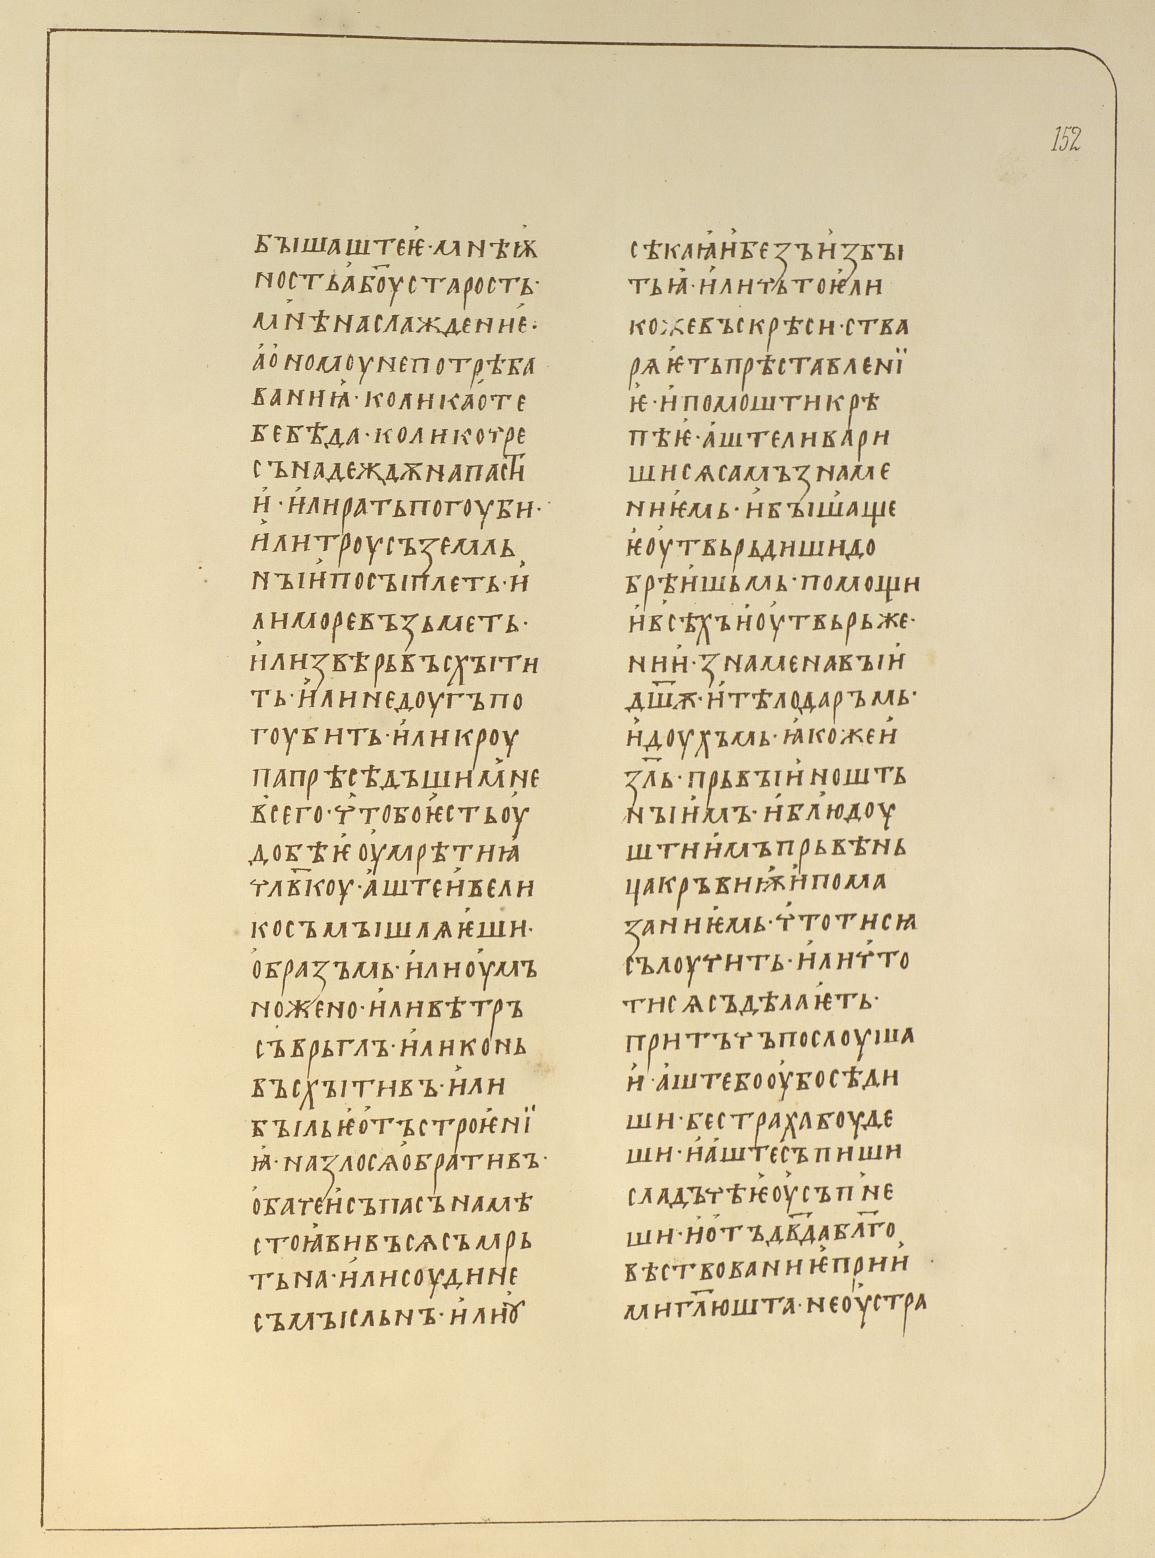 152
бꙑшаштеѥ҆·мнѣѭ҆
ностьа҆бо҃устарость·
мн҆ѣнаслаждениѥ·
а҆о҆номоунепотрѣба
ваниꙗ҆·коликао҆те
бебѣда·коликотре
сънадеждѫнапаст҃и
и҆·и҆лиратьпогоуби·
и҆литроусъꙁемль
нꙑи҆посꙑплеть·и҆
лиморевъꙁьметь·
и҆лиꙁвѣрьвъсхꙑти
ть·и҆линедоугъпо
гоубить·и҆ликроу
папрѣсѣдъшим҆не
в҆сего·ч҆тобоѥ҆стьоу҆
добѣѥ҆оу҆мрѣтиꙗ҆
члв҃коу·а҆штеи҆вели
косъмꙑшлѧѥ҆ши·
о҆браꙁъмь·и҆лиоу҆мъ
ножено·и҆ливѣтръ
съврьглъ·и҆ликон҆ь
въсхꙑтивъ·и҆ли
бꙑльѥ҆о҆тъстроѥ҆нї
ꙗ҆·наꙁлосѧо҆бративъ·
о҆бачеи҆съпасънамѣ
стоꙗ҆вивъсѧсъмрь
тьна·и҆лисоудине
съмꙑсльнъ·и҆лиꙋ҆
сѣкаꙗ҆и҆беꙁъи҆ꙁбꙑ
тьꙗ҆·и҆личьтоѥ҆ли
кожевъскрѣси·ства
рꙗѥ҆тьпрѣставленї
ѥ҆·и҆помоштикрѣ
пѣѥ҆·а҆штеливари
шисѧсамъꙁнаме
ниѥ҆мь·и҆вꙑшаще
ѥ҆оу҆твьрьдишидо
брѣи҆шьмь·помощи
и҆в҆сѣхъи҆оу҆твьрьже·
нии҆·ꙁнаменавꙑи҆
дш҃ѫ·и҆тѣлодаръмь·
и҆доухъмь·ꙗ҆кожеи҆
ꙁл҃ь·прьвꙑи҆ношть
нꙑи҆мъ·и҆блюдоу
штии҆мъпрьвѣнь
цакръвиѭ҆и҆пома
ꙁаниѥ҆мь·ч҆тотисꙗ
сълоучить·и҆лич҆то
тисѧсъдѣлаѥ҆ть·
притъчъпослоуша
и҆·а҆штебооу҆босѣди
ши·бестрахабоуде
ши·и҆а҆штесъпиши
сладъчѣѥ҆оу҆съп҆не
ши·и҆о҆тъдв҃дабл҃го
вѣствованиѥ҆прии҆
мигл҃юшта·неоу҆стра